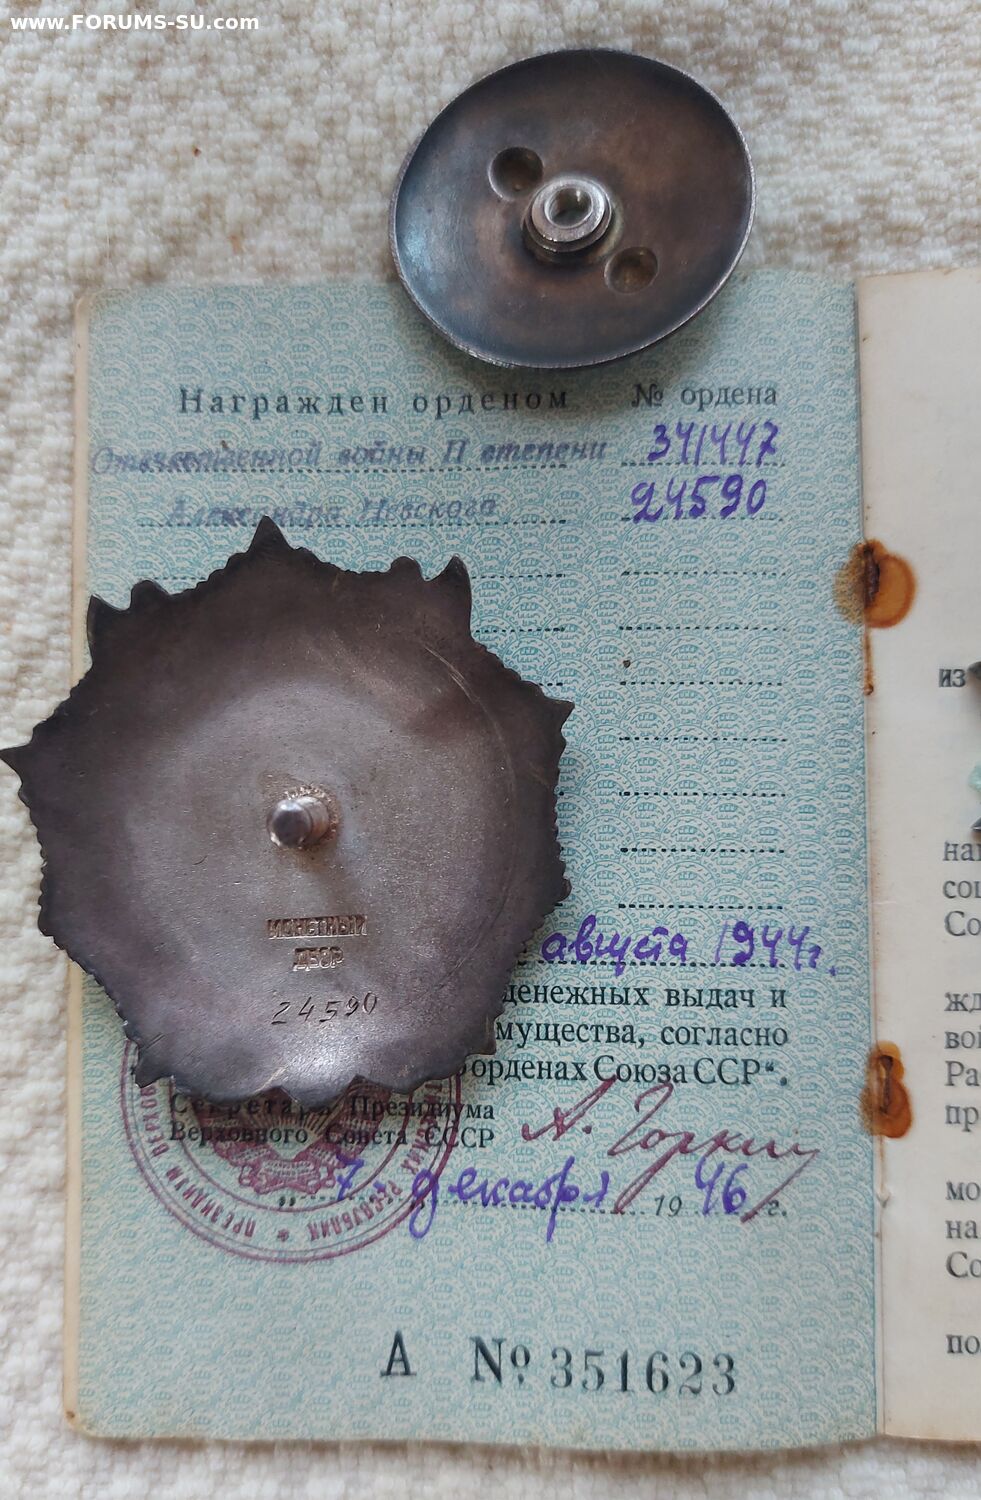 www.FORUMS-SU.com
Награжден орденом № ордена
Отечественной войны II степени 341447
Александра Невского 24590
из
августа 1944г.
денежных выдач и
мущества, согласно
орденах Союза ССР".
МОНЕТНЫЙ
ДВОР
24590
Секретарь Президиума
Верховного Совета СССР
А. Горкин
„7" декабря 1946 г.
ПРЕЗИДИУМ ВЕРХОВН
РЕСПУБЛИК
А № 351623
на
соц
Со
жд
вой
Ра
пр
мо
на
Со
по